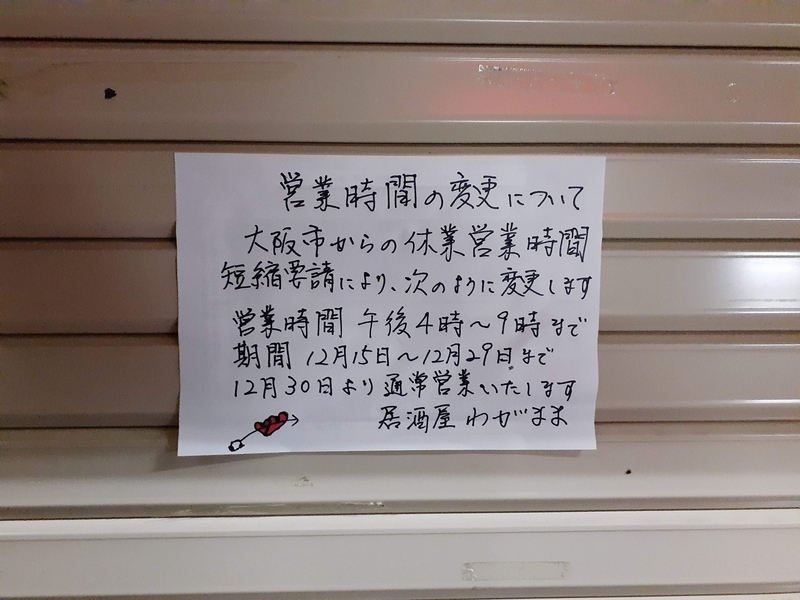 営業時間の変更について
大阪市からの休業営業時間
短縮要請により、次のように変更します
営業時間 午後4時～9時まで
期間 12月15日～12月29日まで
12月30日より通常営業いたします
居酒屋 わがまま